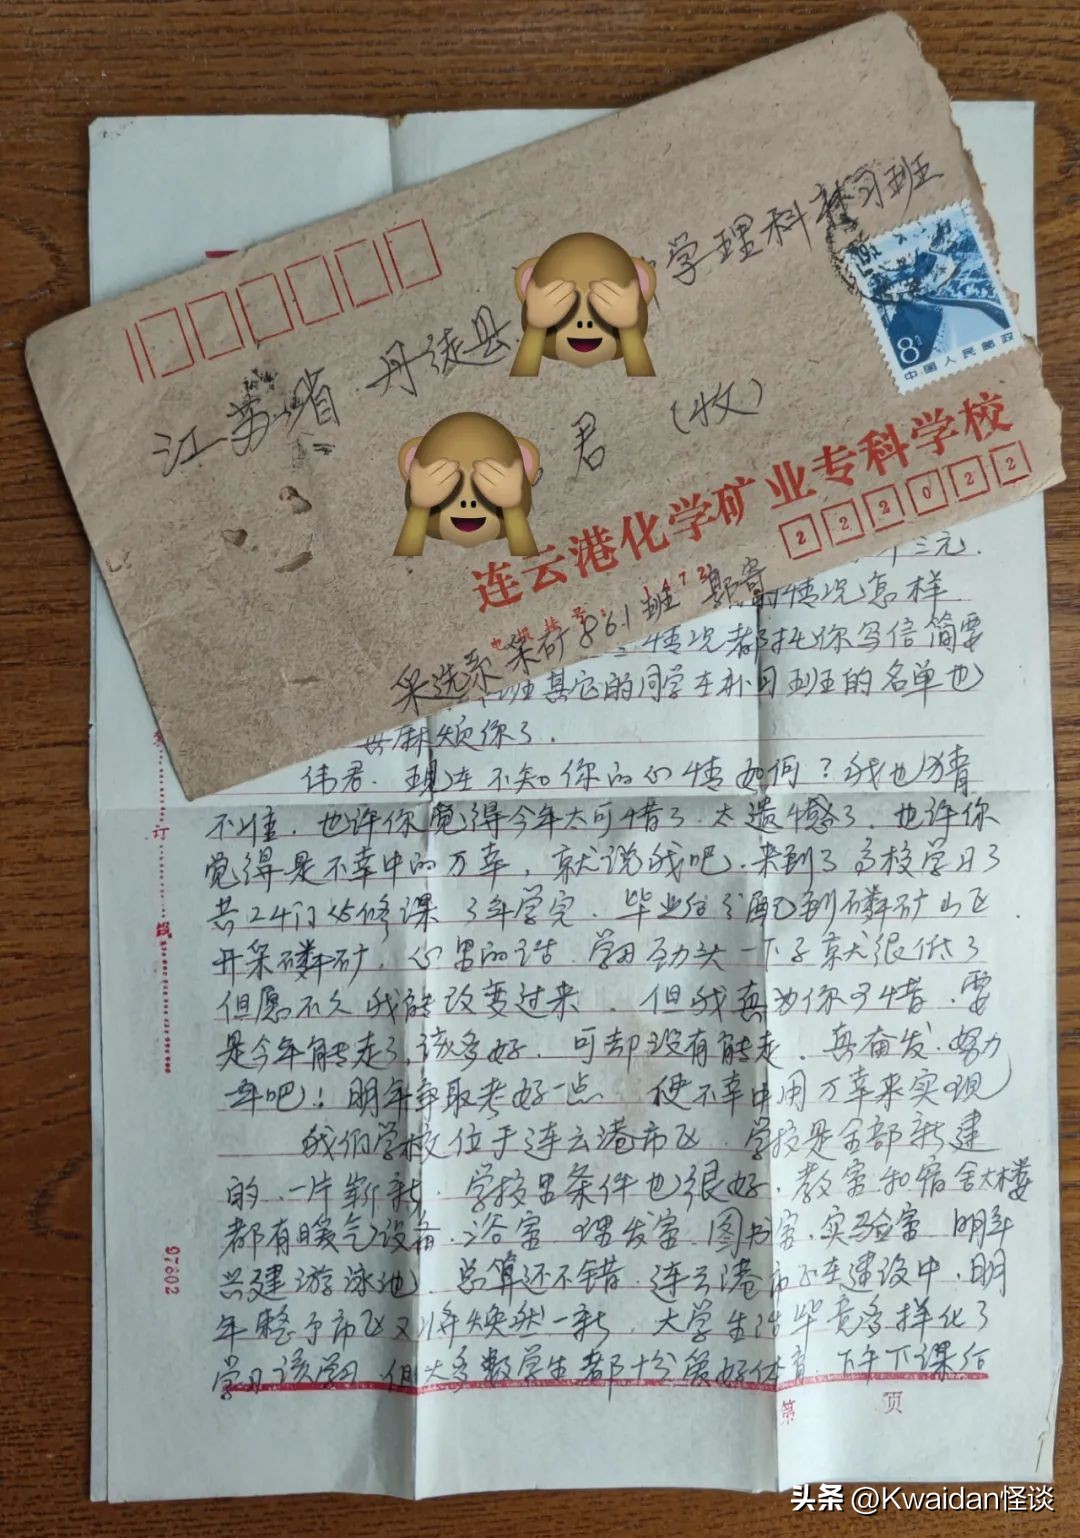 江苏省 丹徒县 中学理科补习班
君 (收)
8分
中国人民邮政
连云港化学矿业专科学校
222022
采选系 采矿861班 郭寄
十三元.
情况怎样
情况都托你写信简要
班其它的同学在补习班的名单也
麻烦你了.
伟君. 现在不知你的心情如何?我也猜
不准. 也许你觉得今年太可惜了. 太遗憾了. 也许你
觉得是不幸中的万幸, 就说我吧. 来到了高校学习了
共24门必修课 3年学完. 毕业后分配到磷矿山区
开采磷矿. 心里的话 学习劲头一下子就很低了
但愿不久我能改变过来. 但我真为你可惜. 要
是今年能走了,该多好. 可却没有能走. 再奋发.努力
一年吧!明年争取考好一点 使不幸中用万幸来实现
我们学校位于连云港市区 学校是全部新建
的. 一片崭新. 学校里条件也很好. 教室和宿舍大楼
都有暖气设备. 浴室 理发室 图书室. 实验室 明年
兴建游泳池. 总算还不错. 连云港市正在建设中. 明
年整个市区又将焕然一新. 大学生活毕竟多样化了
学习该学习 但大多数学生都十分爱好体育. 下午下课后
第 页
订
线
97602
头条 @Kwaidan怪谈